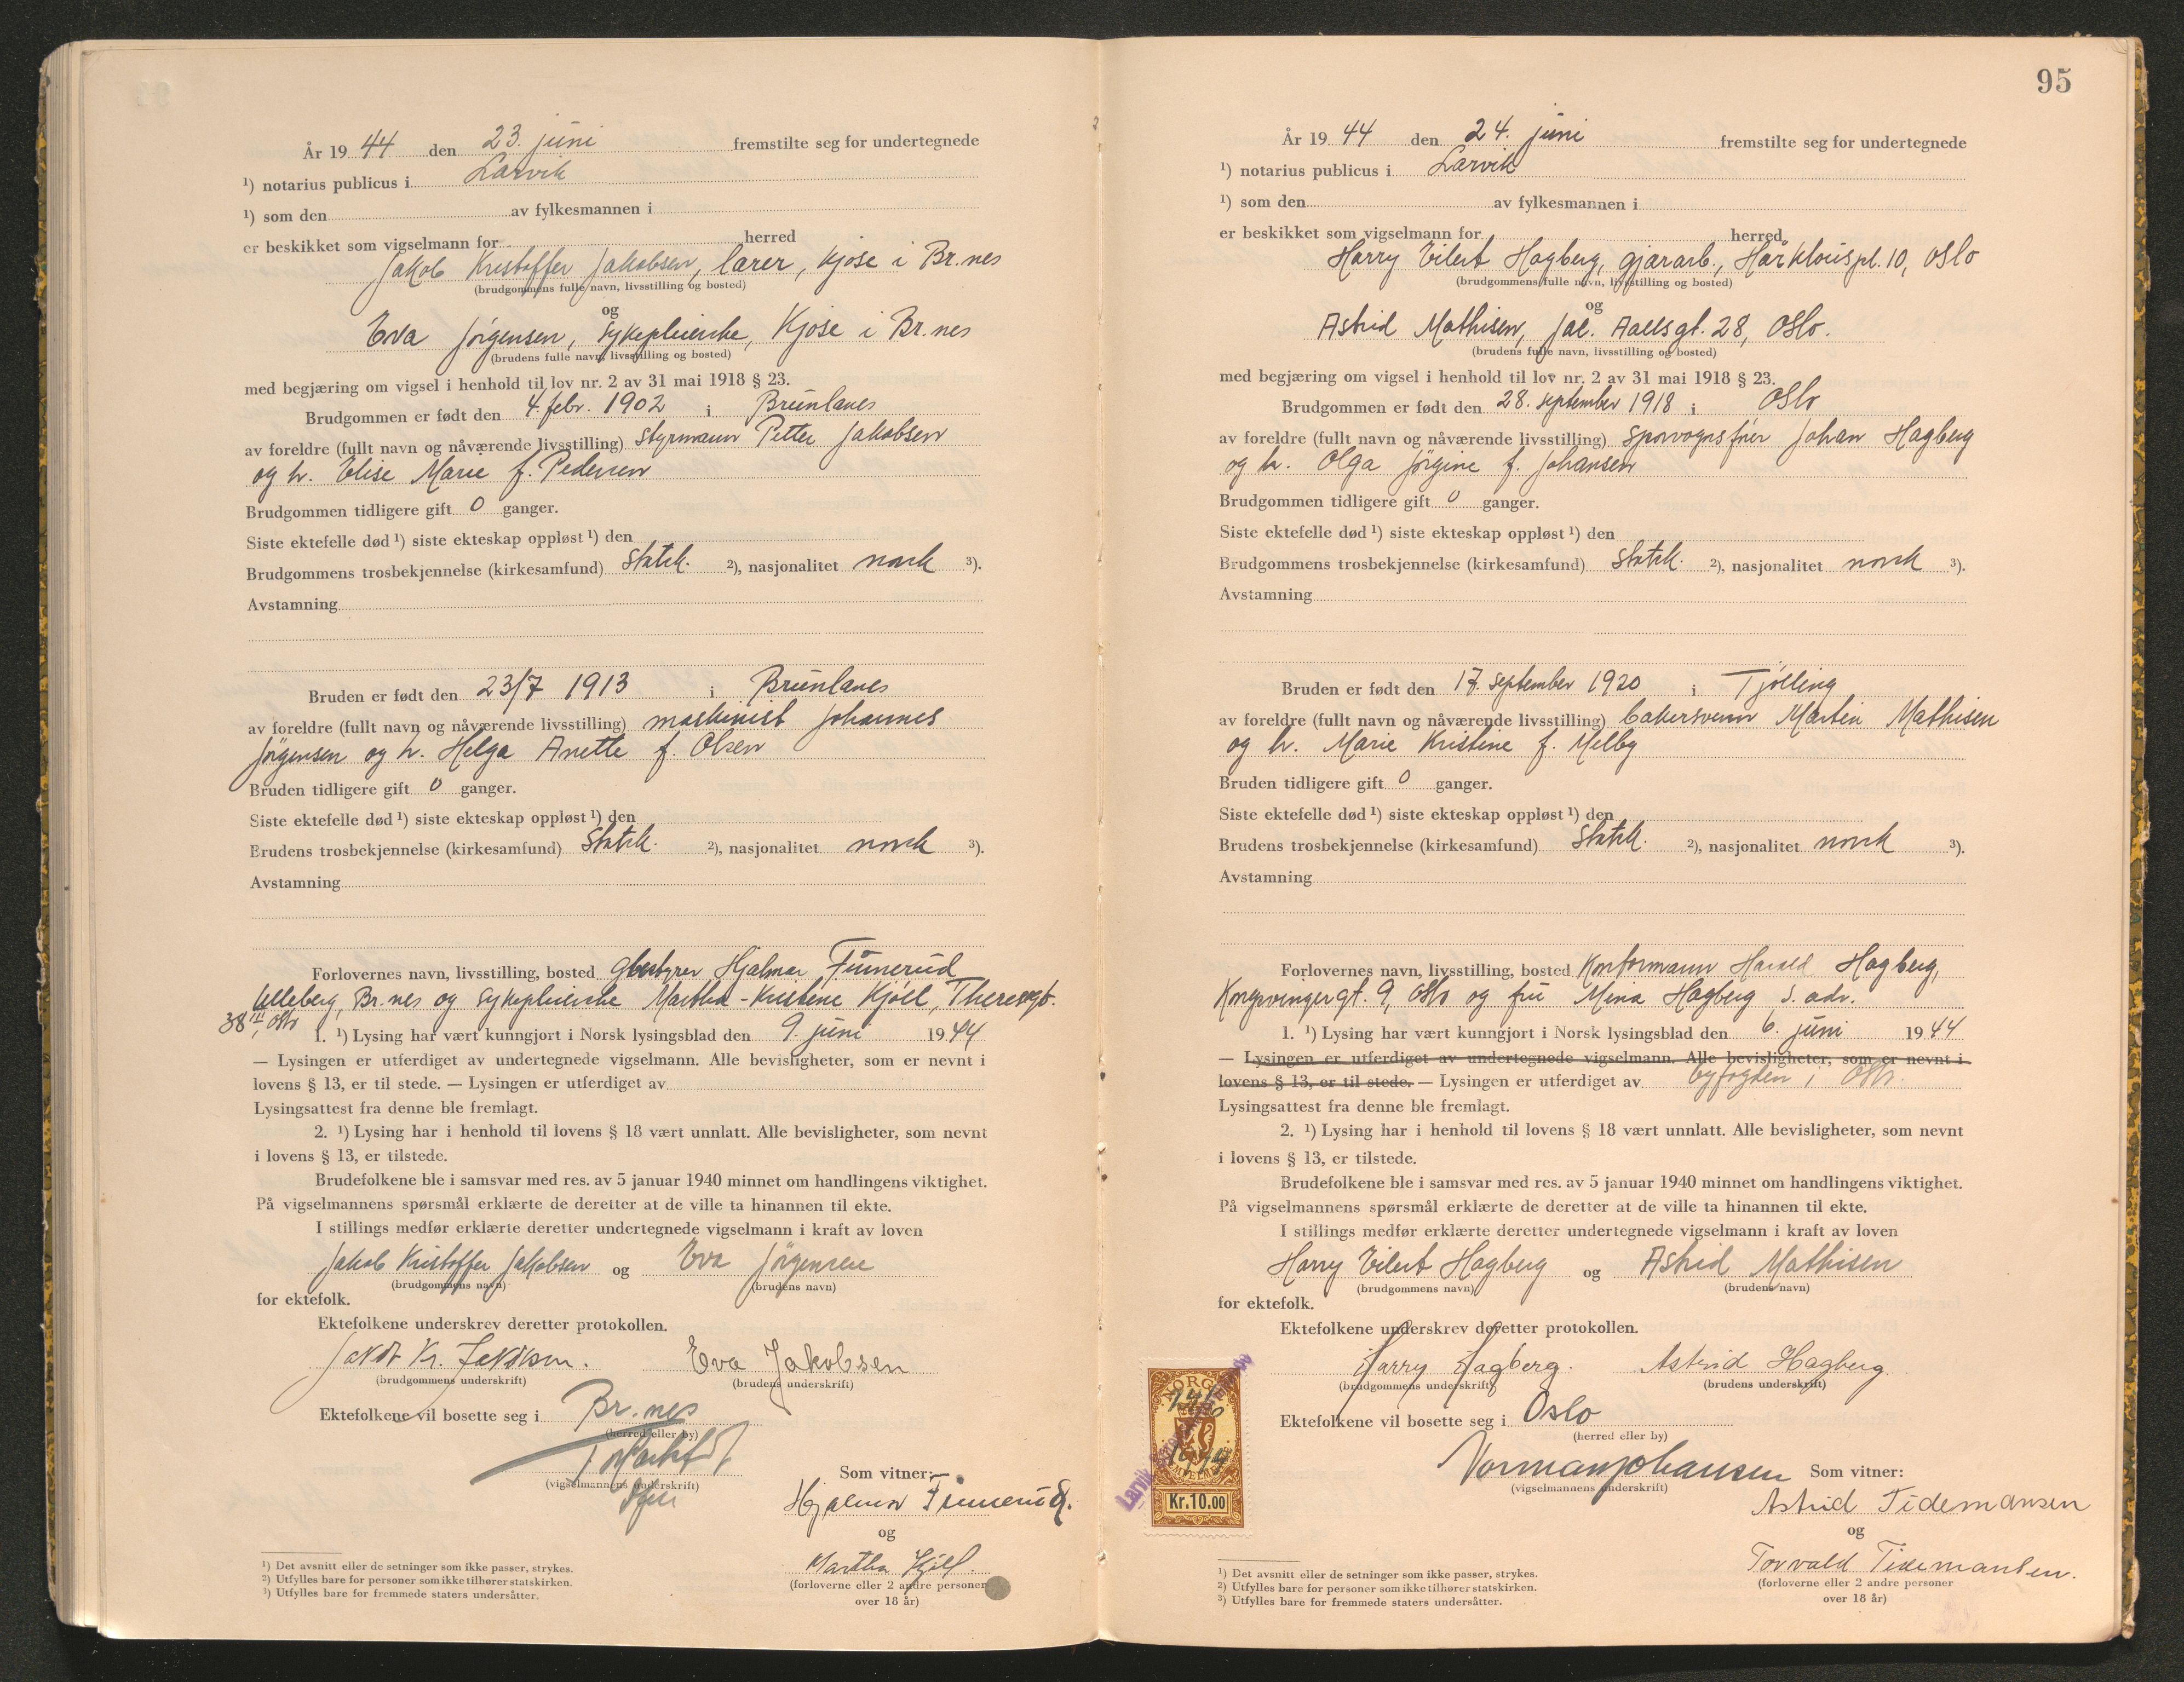 År 19 44 den 23. juni fremstilte seg for undertegnede
¹) notarius publicus i Larvik
¹) som den av fylkesmannen i
er beskikket som vigselmann for herred
Jakob Kristoffer Jakobsen, lærer, Kjose i Br.nes
(brudgommens fulle navn, livsstilling og bosted)
og
Eva Jørgensen, sykepleierske, Kjose i Br.nes
(brudens fulle navn, livsstilling og bosted)
med begjæring om vigsel i henhold til lov nr. 2 av 31 mai 1918 § 23.
Brudgommen er født den 4. febr. 1902 i Brunlanes
av foreldre (fullt navn og nåværende livsstilling) styrmann Petter Jakobsen
og h. Elise Marie f. Pedersen
Brudgommen tidligere gift 0 ganger.
Siste ektefelle død ¹) siste ekteskap oppløst ¹) den
Brudgommens trosbekjennelse (kirkesamfund) Statsk. ²), nasjonalitet norsk ³).
Avstamning
Bruden er født den 23/7 1913 i Brunlanes
av foreldre (fullt navn og nåværende livsstilling) maskinist Johannes
Jørgensen og h. Helga Anette f. Olsen
Bruden tidligere gift 0 ganger.
Siste ektefelle død ¹) siste ekteskap oppløst ¹) den
Brudens trosbekjennelse (kirkesamfund) Statsk. ²), nasjonalitet norsk ³).
Avstamning
Forlovernes navn, livsstilling, bosted Hjalmar Furnerud
Ulleberg, Br.nes og sykepleierske Martha-Kristine Kjøll, Theresesgt.
38 Oslo
1. ¹) Lysing har vært kunngjort i Norsk lysingsblad den 9. juni 1944
— Lysingen er utferdiget av undertegnede vigselmann. Alle bevisligheter, som er nevnt i
lovens § 13, er til stede. — Lysingen er utferdiget av
Lysingsattest fra denne ble fremlagt.
2. ¹) Lysing har i henhold til lovens § 18 vært unnlatt. Alle bevisligheter, som nevnt
i lovens § 13, er tilstede.
Brudefolkene ble i samsvar med res. av 5 januar 1940 minnet om handlingens viktighet.
På vigselmannens spørsmål erklærte de deretter at de ville ta hinannen til ekte.
I stillings medfør erklærte deretter undertegnede vigselmann i kraft av loven
Jakob Kristoffer Jakobsen og Eva Jørgensen
(brudgommens navn) (brudens navn)
for ektefolk.
Ektefolkene underskrev deretter protokollen.
Jakob Kr. Jakobsen. Eva Jakobsen
(brudgommens underskrift) (brudens underskrift)
Ektefolkene vil bosette seg i Br.nes
(herred eller by)
(vigselmannens underskrift)
Som vitner:
Hjalmar Furnerud.
og
Martha Kjøll.
(forloverne eller 2 andre personer
over 18 år)
¹) Det avsnitt eller de setninger som ikke passer, strykes.
²) Utfylles bare for personer som ikke tilhører statskirken.
³) Utfylles bare for fremmede staters undersåtter.
95
År 19 44 den 24. juni fremstilte seg for undertegnede
¹) notarius publicus i Larvik
¹) som den av fylkesmannen i
er beskikket som vigselmann for herred
Harry Eilert Hagberg, gjørarb., Hårklouspl. 10, Oslo
(brudgommens fulle navn, livsstilling og bosted)
og
Astrid Mathisen, Jac. Aallsgt. 28, Oslo.
(brudens fulle navn, livsstilling og bosted)
med begjæring om vigsel i henhold til lov nr. 2 av 31 mai 1918 § 23.
Brudgommen er født den 28. september 1918 i Oslo
av foreldre (fullt navn og nåværende livsstilling) sporvognsfører Johan Hagberg
og h. Olga Jørgine f. Johansen
Brudgommen tidligere gift 0 ganger.
Siste ektefelle død ¹) siste ekteskap oppløst ¹) den
Brudgommens trosbekjennelse (kirkesamfund) Statsk. ²), nasjonalitet norsk ³).
Avstamning
Bruden er født den 17. september 1920 i Tjølling
av foreldre (fullt navn og nåværende livsstilling) bakersvenn Martin Mathisen
og h. Marie Kristine f. Melby
Bruden tidligere gift 0 ganger.
Siste ektefelle død ¹) siste ekteskap oppløst ¹) den
Brudens trosbekjennelse (kirkesamfund) Statsk. ²), nasjonalitet norsk ³).
Avstamning
Forlovernes navn, livsstilling, bosted Kontormann Harald Hagberg,
Kongsvingergt. 9, Oslo og fru Mina Hagberg s. adr.
1. ¹) Lysing har vært kunngjort i Norsk lysingsblad den 6. juni 1944
— Lysingen er utferdiget av undertegnede vigselmann. Alle bevisligheter, som er nevnt i
lovens § 13, er til stede. — Lysingen er utferdiget av byfogden i Oslo.
Lysingsattest fra denne ble fremlagt.
2. ¹) Lysing har i henhold til lovens § 18 vært unnlatt. Alle bevisligheter, som nevnt
i lovens § 13, er tilstede.
Brudefolkene ble i samsvar med res. av 5 januar 1940 minnet om handlingens viktighet.
På vigselmannens spørsmål erklærte de deretter at de ville ta hinannen til ekte.
I stillings medfør erklærte deretter undertegnede vigselmann i kraft av loven
Harry Eilert Hagberg og Astrid Mathisen
(brudgommens navn) (brudens navn)
for ektefolk.
Ektefolkene underskrev deretter protokollen.
Harry Hagberg. Astrid Hagberg
(brudgommens underskrift) (brudens underskrift)
Ektefolkene vil bosette seg i Oslo
(herred eller by)
Normann Johansen
(vigselmannens underskrift)
Som vitner:
Astrid Tidemansen
og
Torvald Tidemansen.
(forloverne eller 2 andre personer
over 18 år)
NORGE
Kr.10.00
Larvik
¹) Det avsnitt eller de setninger som ikke passer, strykes.
²) Utfylles bare for personer som ikke tilhører statskirken.
³) Utfylles bare for fremmede staters undersåtter.